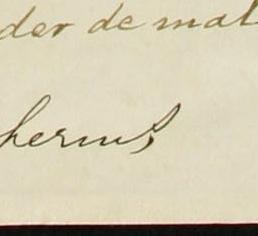 der de mat
herms